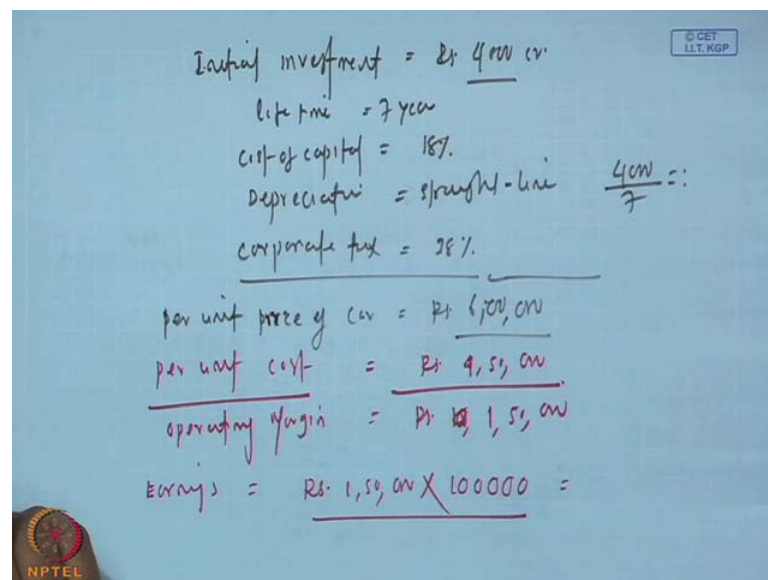 © CET
I.I.T. KGP
Initial investment = Rs. 4000 cr.
life time = 7 year
cost of capital = 18%.
Depreciation = straight-line 4000/7 =:
corporate tax = 28%.
per unit price of car = Rs. 6,00,000
per unit cost = Rs. 4,50,000
operating Margin = Rs. 1,50,000
Earnings = Rs. 1,50,000 X 100000 =
NPTEL